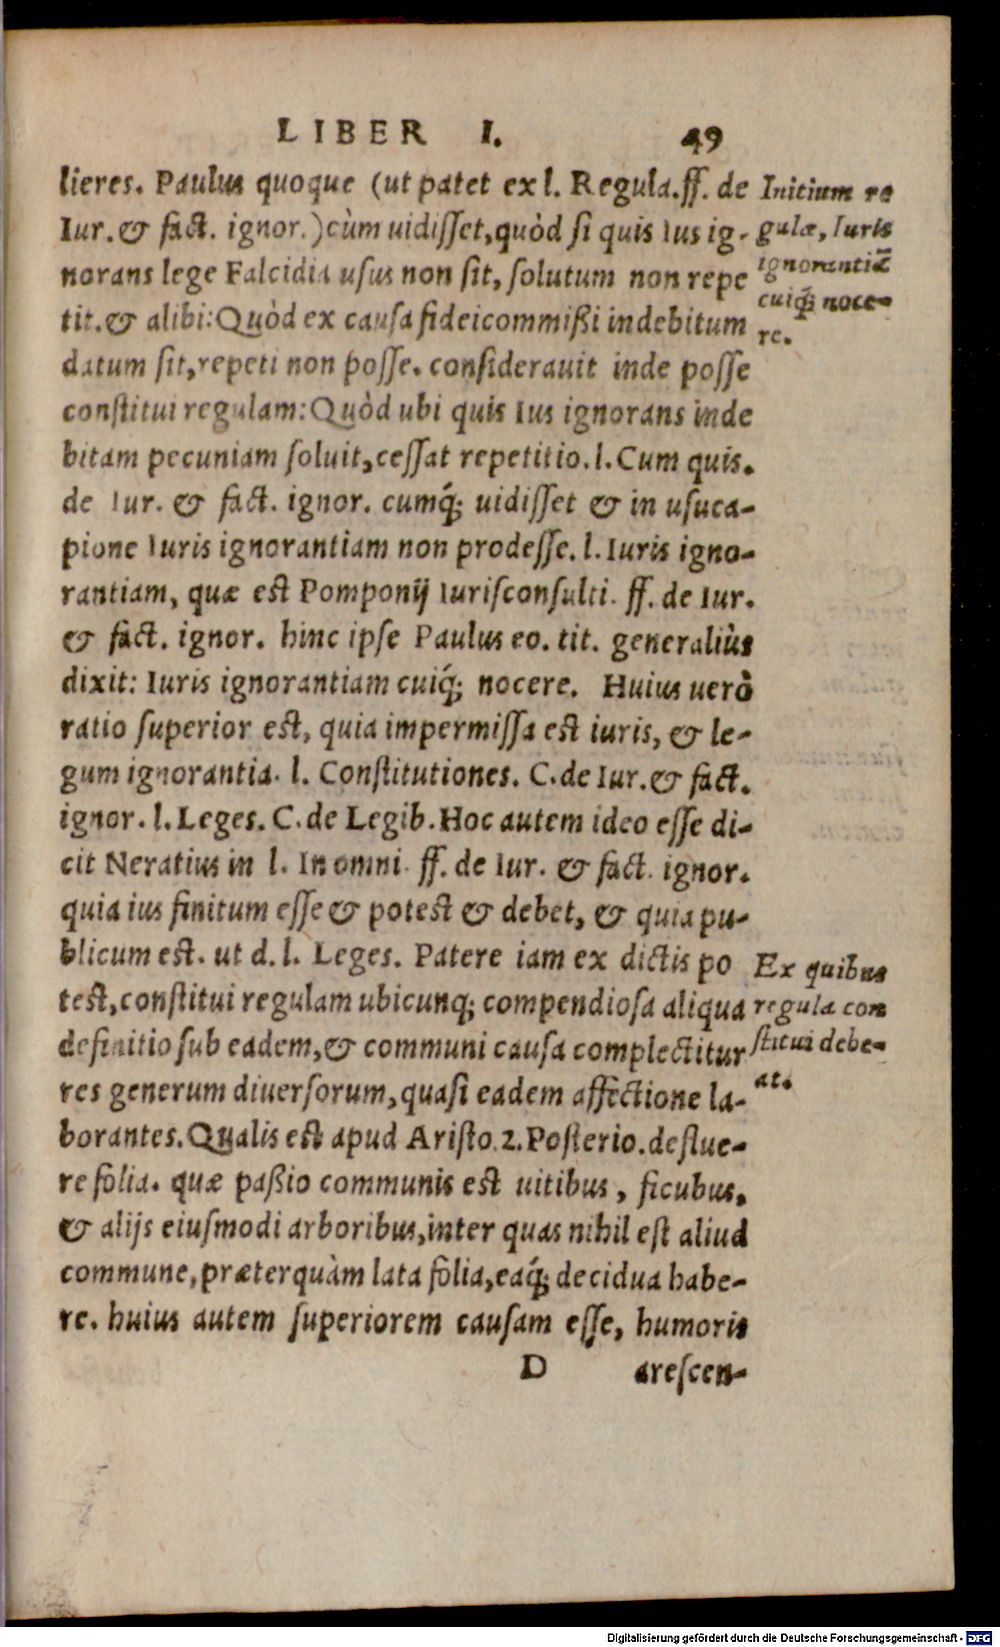 LIBER I. 49
lieres. Paulus quoque (ut patet ex l. Regula. ff. de
Iur. & fact. ignor.) cùm uidisset, quòd si quis Ius ig-
norans lege Falcidia usus non sit, solutum non repe
tit. & alibi: Quòd ex causa fideicommißi indebitum
datum sit, repeti non posse. considerauit inde posse
constitui regulam: Quòd ubi quis Ius ignorans inde
bitam pecuniam soluit, cessat repetitio. l. Cum quis.
de Iur. & fact. ignor. cumq́; uidisset & in usuca-
pione Iuris ignorantiam non prodesse. l. Iuris igno-
rantiam, quæ est Pomponij Iurisconsulti. ff. de Iur.
& fact. ignor. hinc ipse Paulus eo. tit. generaliùs
dixit: Iuris ignorantiam cuiq́; nocere. Huius uerò
ratio superior est, quia impermissa est iuris, & le-
gum ignorantia. l. Constitutiones. C. de Iur. & fact.
ignor. l. Leges. C. de Legib. Hoc autem ideo esse di-
cit Neratius in l. In omni. ff. de Iur. & fact. ignor.
quia ius finitum esse & potest & debet, & quia pu-
blicum est. ut d. l. Leges. Patere iam ex dictis po
test, constitui regulam ubicunq; compendiosa aliqua
definitio sub eadem, & communi causa complectitur
res generum diuersorum, quasi eadem affectione la-
borantes. Qualis est apud Aristo. 2. Posterio. deflue-
re folia. quæ paßio communis est uitibus, ficubus,
& alijs eiusmodi arboribus, inter quas nihil est aliud
commune, præterquàm lata folia, eaq́; decidua habe-
re. huius autem superiorem causam esse, humoris
D arescen-
Initium re
gulæ, Iuris
ignorantiã
cuiq́; noce-
re.
Ex quibus
regula con
stitui debe-
at.
Digitalisierung gefördert durch die Deutsche Forschungsgemeinschaft - DFG